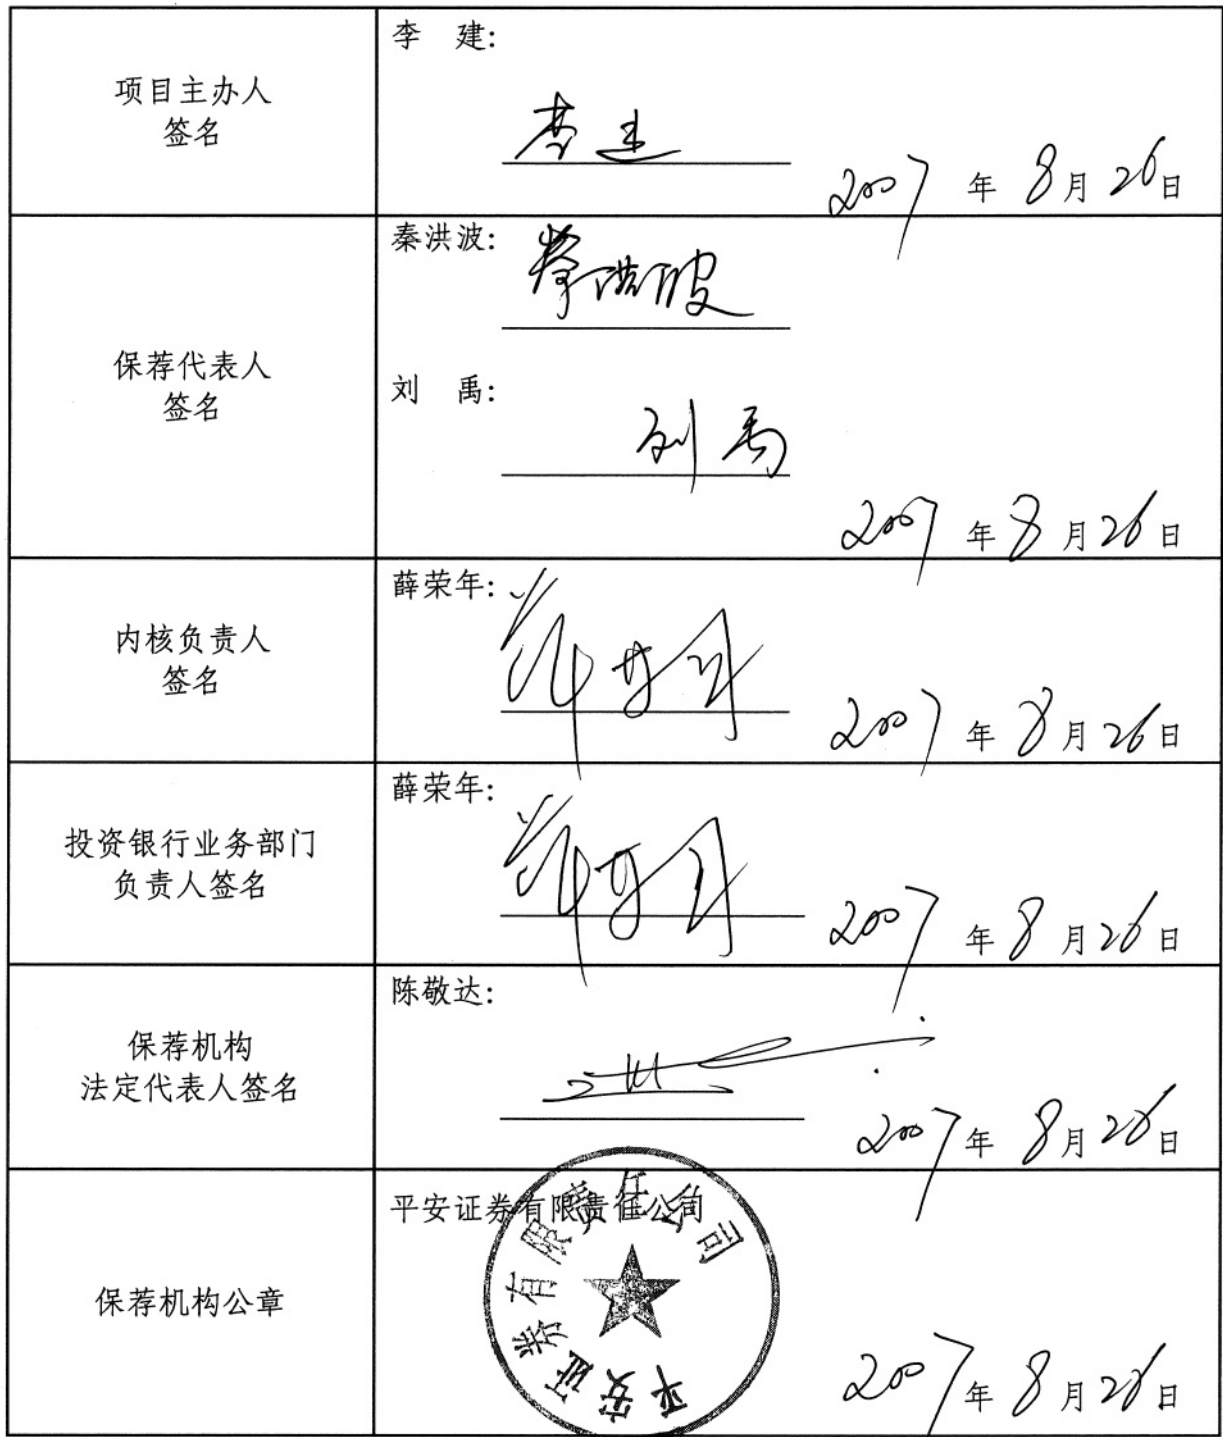 项目主办人
签名
李 建:
李建
2007 年 8 月 26 日
保荐代表人
签名
秦洪波:
秦洪波
刘 禹:
刘禹
2007 年 8 月 26 日
内核负责人
签名
薛荣年:
薛荣年
2007 年 8 月 26 日
投资银行业务部门
负责人签名
薛荣年:
薛荣年
2007 年 8 月 26 日
保荐机构
法定代表人签名
陈敬达:
2007 年 8 月 26 日
保荐机构公章
平安证券有限责任公司
平安证券有限责任公司
2007 年 8 月 26 日